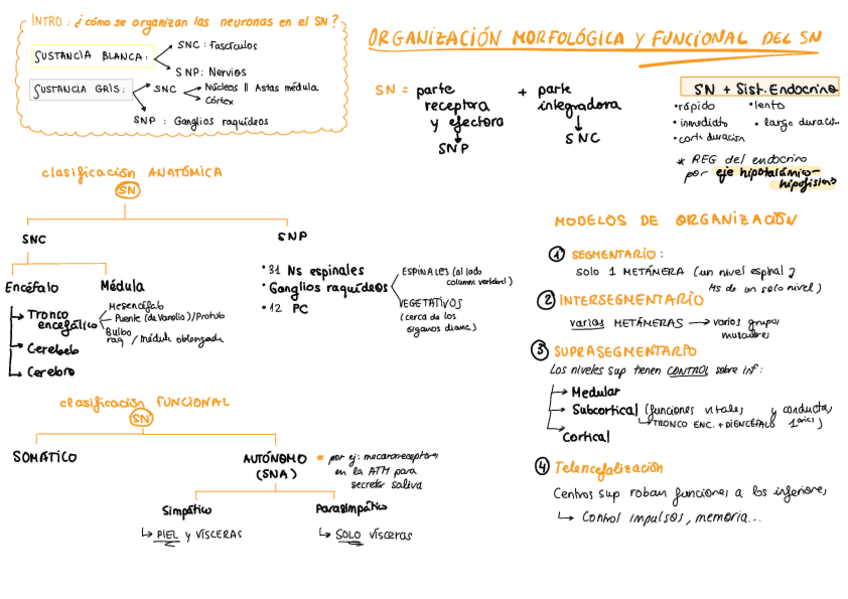 INTRO: ¿cómo se organizan las neuronas en el SN?
SUSTANCIA BLANCA:
SNC: Fascículos
SNP: Nervios
SUSTANCIA GRIS:
SNC
Núcleos || Astas médula
Córtex
SNP: Ganglios raquídeos
ORGANIZACIÓN MORFOLÓGICA Y FUNCIONAL DEL SN
SN = parte receptora y efectora + parte integradora
SNP
SNC
SN + Sist. Endocrino
• rápido
• inmediato
• corta duración
• lento
• larga duración
* REG del endocrino
por eje hipotalámico-
hipofisario
clasificación ANATÓMICA
SN
SNC
SNP
Encéfalo
Médula
Tronco
encefálico
Mesencéfalo
Puente (de Varolio)/Protub
Bulbo
raq / médula oblongada
Cerebelo
Cerebro
• 31 Ns espinales
• Ganglios raquídeos
• 12 PC
ESPINALES (al lado
columna vertebral)
VEGETATIVOS
(cerca de los
órganos diana)
clasificación FUNCIONAL
SN
SOMÁTICO
AUTÓNOMO
(SNA)
* por ej: mecanorreceptores
en la ATM para
secretar saliva
Simpático
PIEL y VÍSCERAS
Parasimpático
SOLO vísceras
MODELOS DE ORGANIZACIÓN
1 SEGMENTARIO:
solo 1 METÁMERA (un nivel espinal)
Ms de un solo nivel)
2 INTERSEGMENTARIO
varias METÁMERAS → varios grupos
musculares
3 SUPRASEGMENTARIO
Los niveles sup tienen CONTROL sobre inf:
Medular
Subcortical (funciones vitales y conductas
TRONCO ENC. + DIENCÉFALO 1arias)
Cortical
4 Telencefalización
Centros sup roban funciones a los inferiores
Control impulsos, memoria...